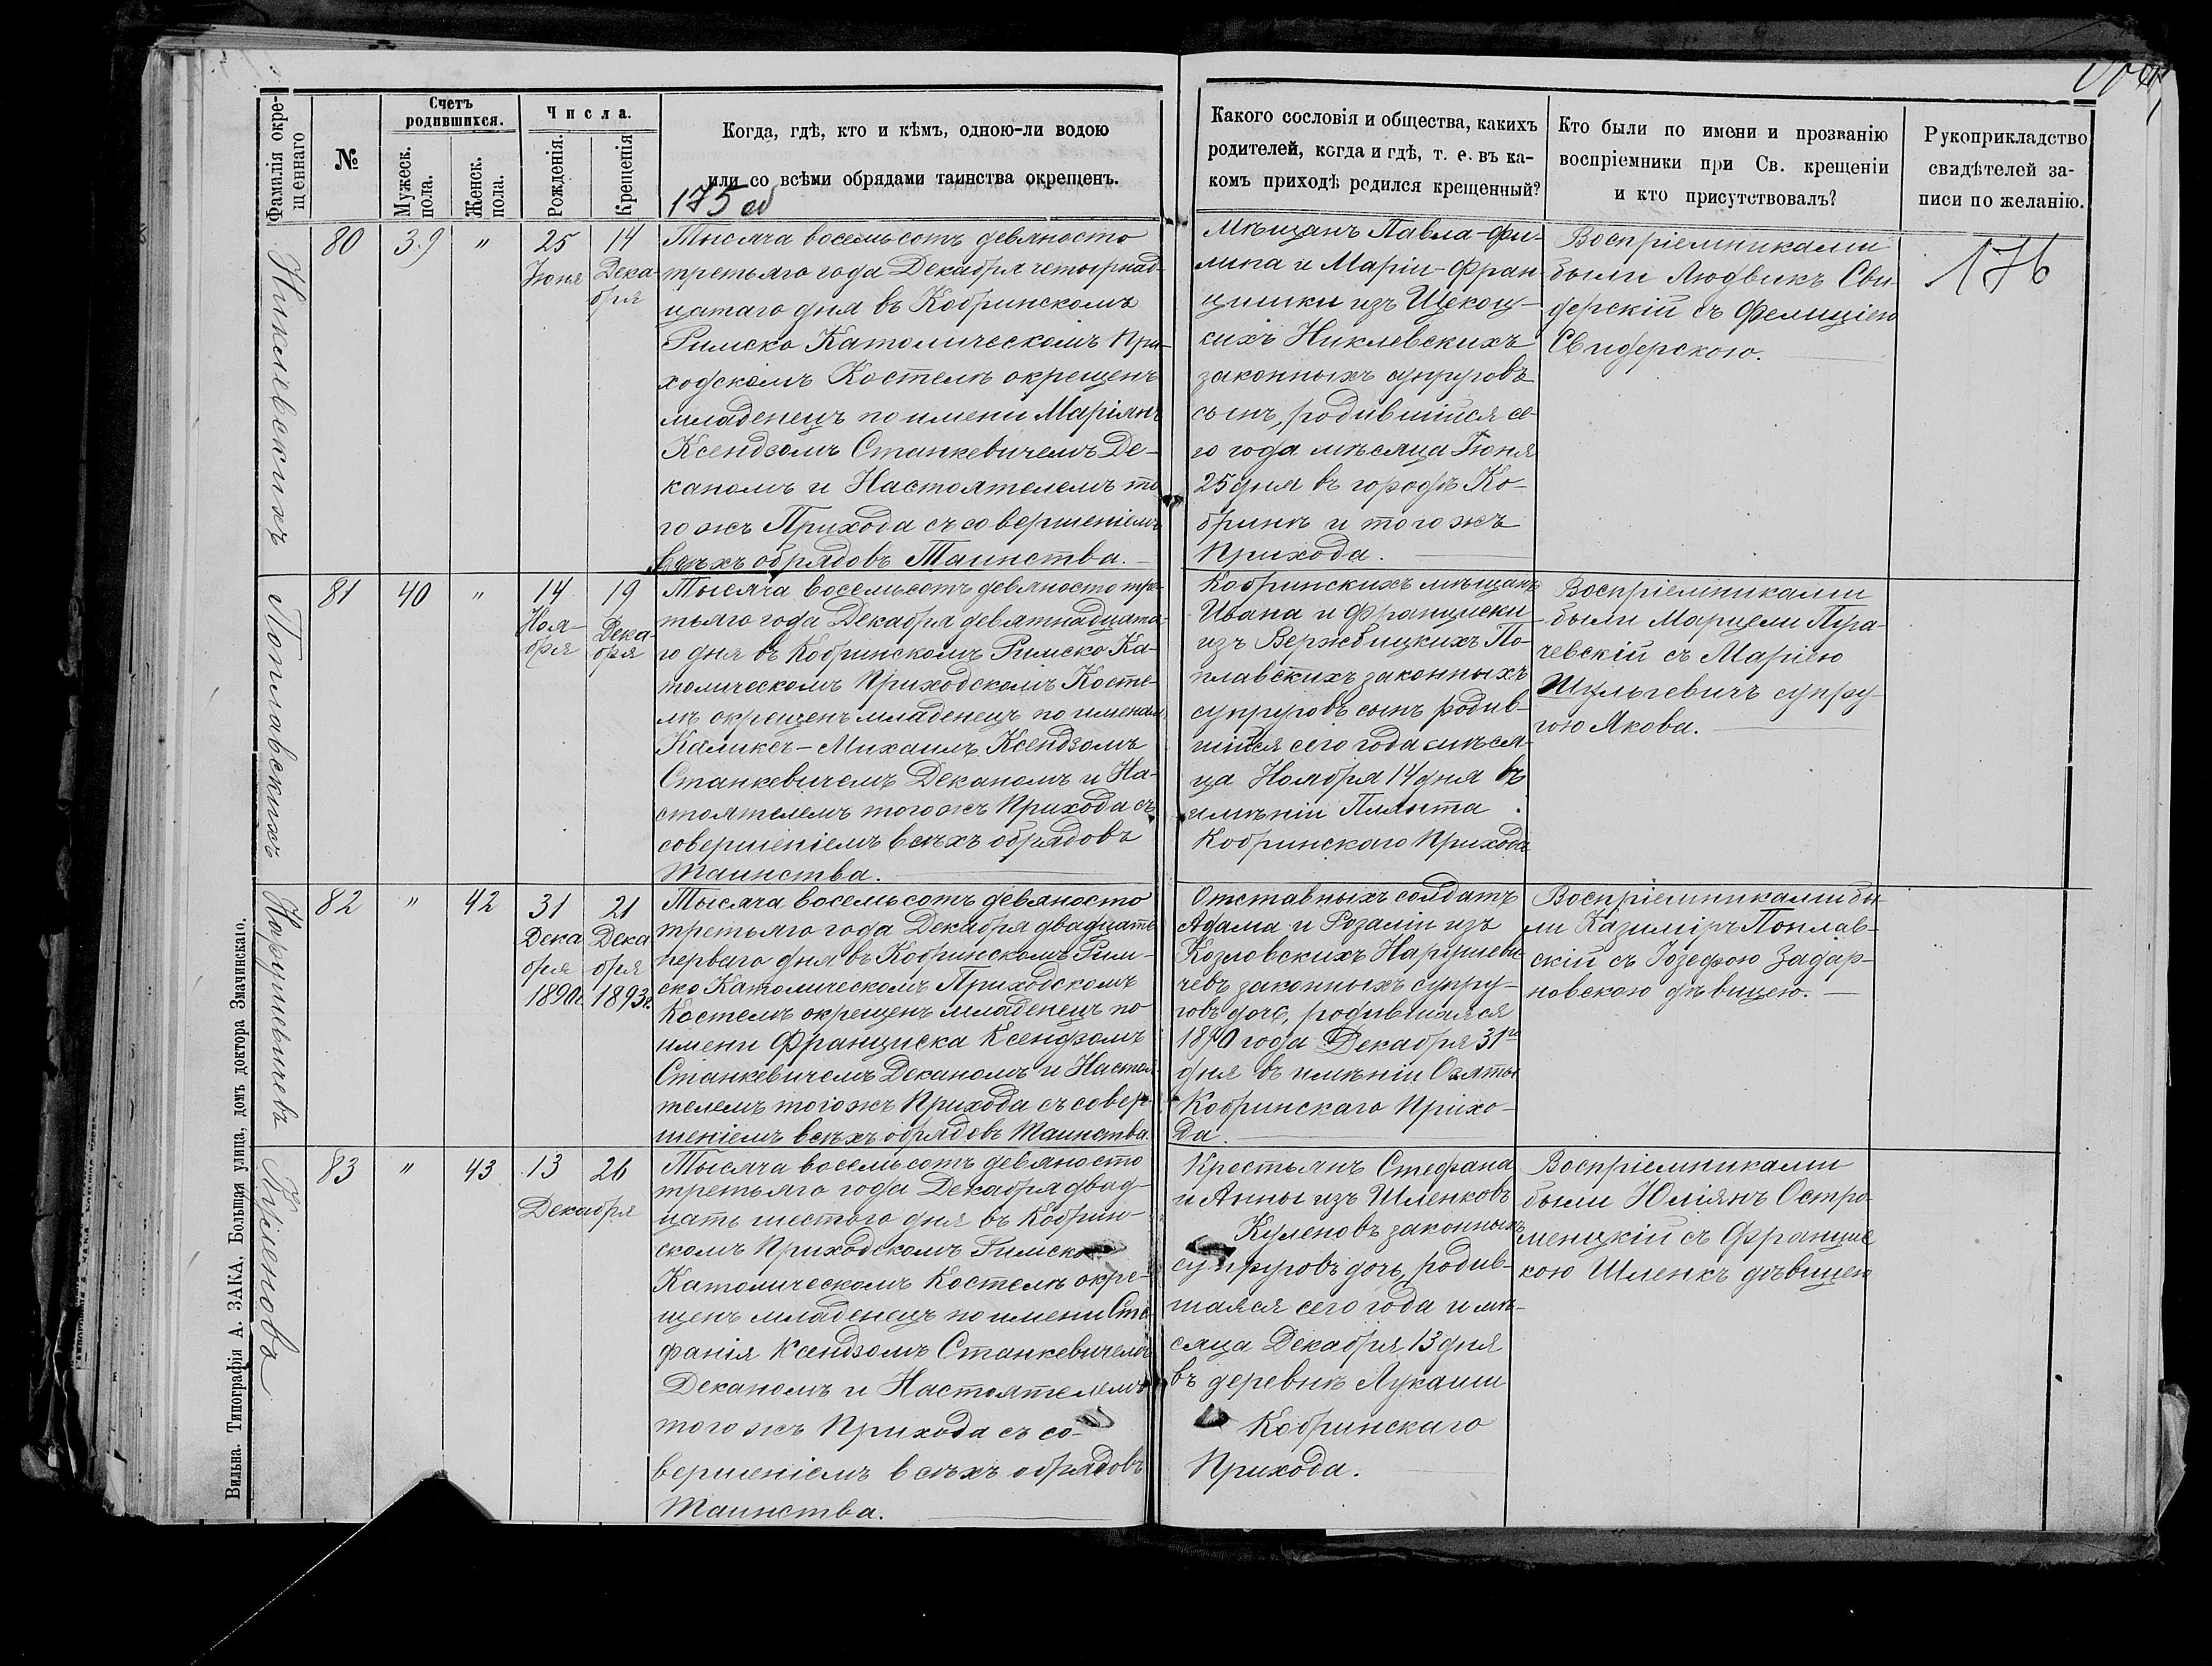 Фамилія окре-
щеннаго
№
Счетъ
родившихся.
Мужеск.
пола.
Женск.
пола.
Числа.
Рожденія.
Крещенія
Когда, гдѣ, кто и кѣмъ, одною-ли водою
или со всѣми обрядами таинства окрещенъ.
175 об
Какого сословія и общества, какихъ
родителей, когда и гдѣ, т. е. въ ка-
комъ приходѣ родился крещенный?
Кто были по имени и прозванію
воспріемники при Св. крещеніи
и кто присутствовалъ?
Рукоприкладство
свидѣтелей за-
писи по желанію.
176
Никлевскихъ
80
39
"
25
Іюня
14
Дека-
бря
Тысяча восемьсотъ девяносто
третьяго года Декабря четырнад-
цатаго дня въ Кобринскомъ
Римско Католическомъ При-
ходскомъ Костелѣ окрещенъ
младенецъ по имени Маріянъ
Ксендзомъ Станкевичемъ Де-
каномъ и Настоятелемъ то
гожъ Прихода съ совершеніемъ
всѣхъ обрядовъ Таинства.
Мѣщанъ Павла-Фи-
липа и Маріи-Фран-
цишки изъ Щекоц-
кихъ Никлевскихъ
законныхъ супруговъ
сынъ, родившійся се-
го года мѣсяца Іюня
25 дня въ городѣ Ко-
бринѣ и того жъ
Прихода.
Воспріемниками
были Людвикъ Сви-
дерскій съ Фелиціею
Свидерскою.
Поплавскихъ
81
40
"
14
Ноя-
бря
19
Дека-
бря
Тысяча восемьсотъ девяносто тре-
тьяго года Декабря девятнадцата-
го дня въ Кобринскомъ Римско Ка-
толическомъ Приходскомъ Косте-
лѣ окрещенъ младенецъ по именам
Каликс-Михаилъ Ксендзомъ
Станкевичемъ Деканомъ и На-
стоятелемъ того жъ Прихода съ
совершеніемъ всѣхъ обрядовъ
Таинства.
Кобринскихъ мѣщанъ
Ивана и Франциски
изъ Вержбицкихъ По-
плавскихъ законныхъ
супруговъ сынъ родив-
шійся сего года мѣся-
ца Ноября 14 дня въ
имѣніи Плянта
Кобринскаго Прихода
Воспріемниками
были Марцели Пра-
чевскій съ Маріею
Шульгевичъ супру-
гою Якова.
Нарушевичевъ
82
"
42
31
Дека
бря
1890г.
21
Дека
бря
1893г.
Тысяча восемьсотъ девяносто
третьяго года Декабря двадцать
перваго дня въ Кобринскомъ Рим-
ско Католическомъ Приходскомъ
Костелѣ окрещенъ младенецъ по
имени Франциска Ксендзомъ
Станкевичемъ Деканомъ и Настоя-
телемъ того жъ Прихода съ совер-
шеніемъ всѣхъ обрядовъ Таинства.
Отставныхъ солдатъ
Адама и Розаліи изъ
Козловскихъ Нарушеви-
чевъ законныхъ супру-
говъ дочь, родившаяся
1890 года Декабря 31го
дня въ имѣніи Озяты
Кобринскаго Прихо-
да.
Воспріемниками бы-
ли Казиміръ Поплав-
скій съ Іозефою Задар-
новскою дѣвицею.
Куленовъ
83
"
43
13
26
Декабря
Тысяча восемьсотъ девяносто
третьяго года Декабря двад-
цать шестого дня въ Кобрин-
скомъ Приходскомъ Римско
Католическомъ Костелѣ окре-
щенъ младенецъ по имени Сте
фанія Ксендзомъ Станкевичемъ
Деканомъ и Настоятелемъ
того жъ Прихода съ со-
вершеніемъ всѣхъ обрядовъ
Таинства.
Крестьянъ Стефана
и Анны изъ Шленковъ
Куленовъ законныхъ
супруговъ дочь, родив-
шаяся сего года и мѣ-
сяца Декабря 13 дня
въ деревнѣ Лукаши
Кобринскаго
Прихода.
Воспріемниками
были Юліянъ Остро-
менцкій съ Францис
кою Шленкъ дѣвицею
Вильна. Типографія А. ЗАКА, Большая улица, домъ доктора Змачинскаго.